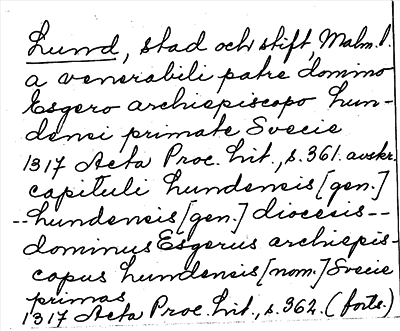 Lund, stad och stift, Malm.l.
a venerabili patre domino
Esgero archiepiscopo Lun-
densi primate Svecie
1317 Acta Proc. Lit., s. 361. avskr.
capituli Lundensis [gen.]
--Lundensis [gen.] diocesis--
dominus Esgerus archiepis-
copus Lundensis [nom.] Svecie
primas
1317 Acta Proc. Lit., s. 362. (forts.)